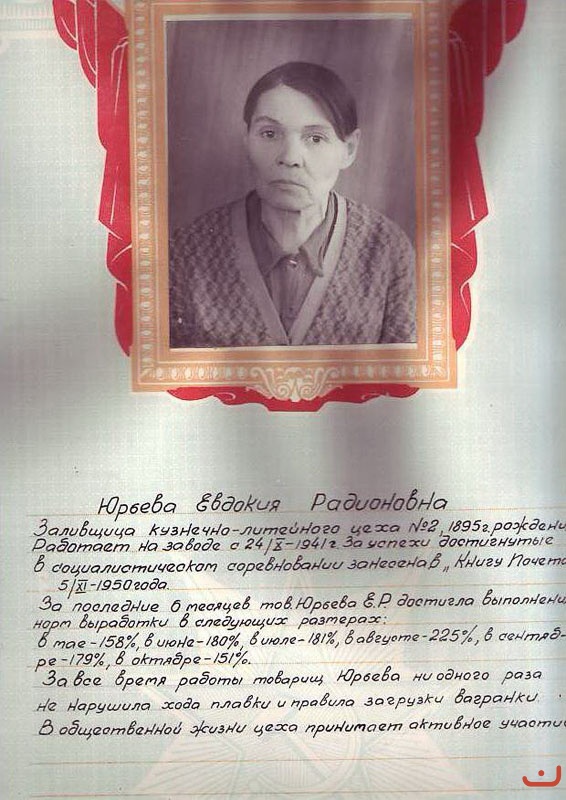 Юрьева Евдокия Радионовна
Заливщица кузнечно-литейного цеха №2, 1895г. рождени
Работает на заводе с 24/X-1941г. За успехи достигнутые
в социалистическом соревновании занесена в „Книгу Почета
5/XI-1950года.
За последние 6 месяцев тов. Юрьева Е.Р. достигла выполнени
норм выработки в следующих размерах:
в мае-158%, в июне-180%, в июле-181%, в августе-225%, в сентяб-
ре-179%, в октябре-151%.
За все время работы товарищ Юрьева ни одного раза
не нарушила хода плавки и правила загрузки вагранки.
В общественной жизни цеха принимает активное участи